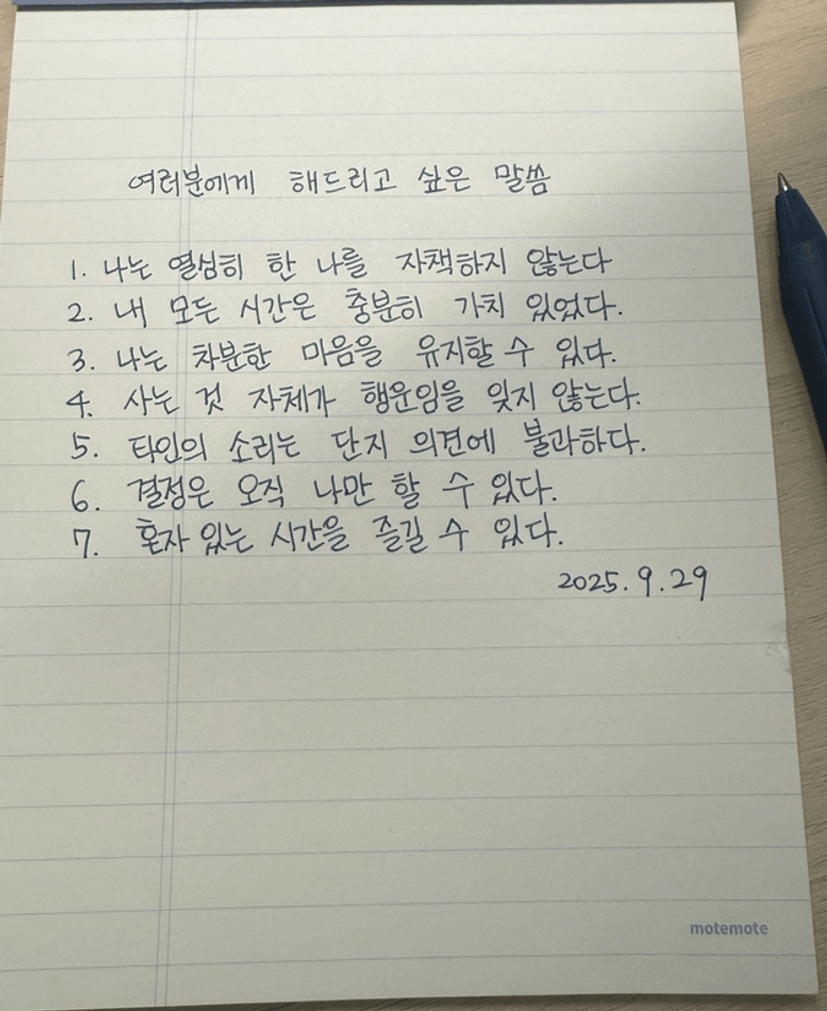 여러분에게 해드리고 싶은 말씀
1. 나는 열심히 한 나를 자책하지 않는다
2. 내 모든 시간은 충분히 가치 있었다.
3. 나는 차분한 마음을 유지할 수 있다.
4. 사는 것 자체가 행운임을 잊지 않는다.
5. 타인의 소리는 단지 의견에 불과하다.
6. 결정은 오직 나만 할 수 있다.
7. 혼자 있는 시간을 즐길 수 있다.
2025.9.29
motemote